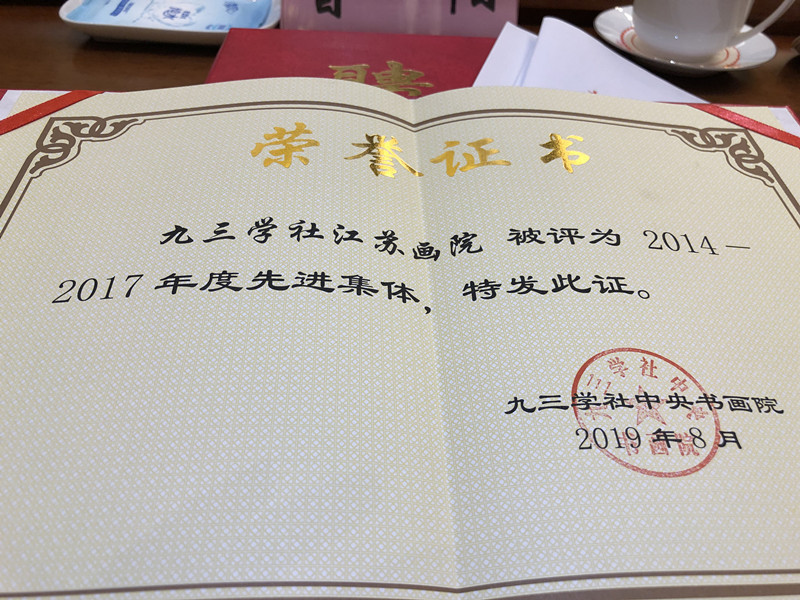 聘
荣誉证书
九三学社江苏画院 被评为 2014－
2017 年度先进集体，特发此证。
九三学社中央书画院
2019 年 8 月